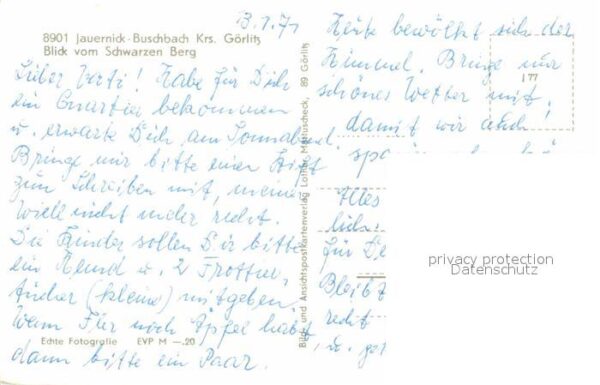 13.7.71
8901 Jauernick-Buschbach Krs. Görlitz
Blick vom Schwarzen Berg
Lieber Vati! Habe für Dich
ein Quartier bekommen
u. erwarte Dich am Sonnabend.
Bringe mir bitte einen Stift
zum Schreiben mit, meiner
will nicht mehr recht.
Die Kinder sollen Dir bitte
ein Hemd u. 2 Frottier-
tücher (kleine) mitgeben.
Wenn Ihr noch Äpfel habt,
dann bitte ein Paar.
Echte Fotografie EVP M —.20
Bild und Ansichtspostkartenverlag Lothar Mattuscheck, 89 Görlitz
Heute bewölkt sich der
Himmel. Bringe nur
schönes Wetter mit,
damit wir auch
177
Alles
für
Bleibt
recht
u.
privacy protection
Datenschutz